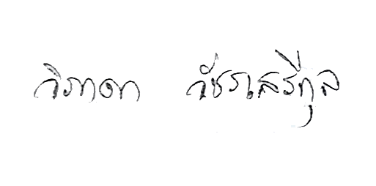 วิภาดา วัชรเสรีกุล